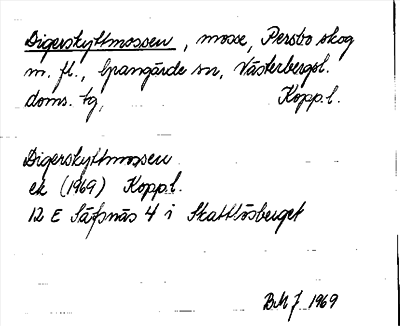 Digerskyttmossen, mosse, Persbo skog
m. fl., Grangärde sn, Västerbergsl.
doms. tg, Kopp. l.
Digerskyttmossen
ek (1969) Kopp. l.
12 E Säfsnäs 4 i Skattlösberget
BMJ 1969